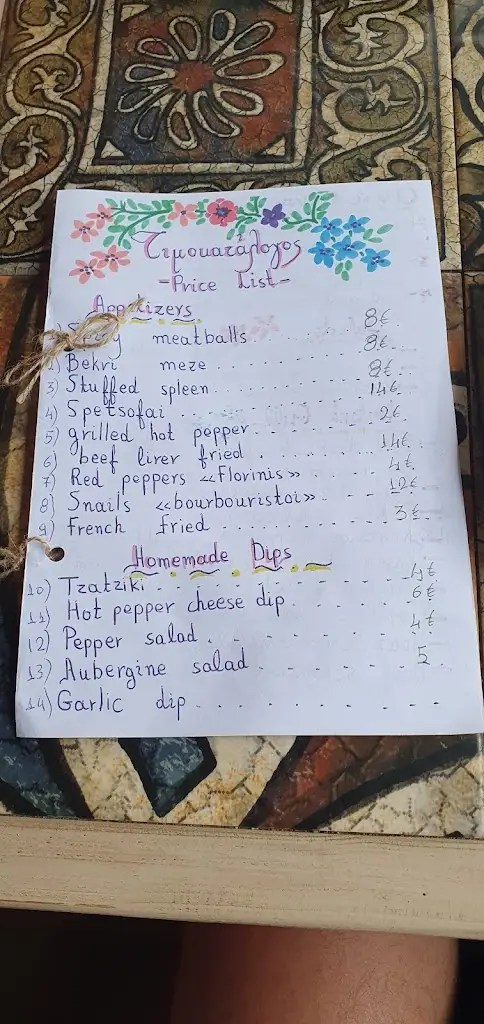 Τιμοκατάλογος
-Price List-
Appetizers
meatballs........ 8€
2) Bekri meze........ 8€
3) Stuffed spleen........ 8€
4) Spetsofai........ 14€
5) grilled hot pepper........ 2€
6) beef liver fried........ 14€
7) Red peppers «Florinis»........ 4€
8) Snails «bourbouristoi»........ 12€
9) French fried........ 3€
Homemade Dips
10) Tzatziki........ 4€
11) Hot pepper cheese dip........ 6€
12) Pepper salad........ 4€
13) Aubergine salad........ 5
14) Garlic dip........